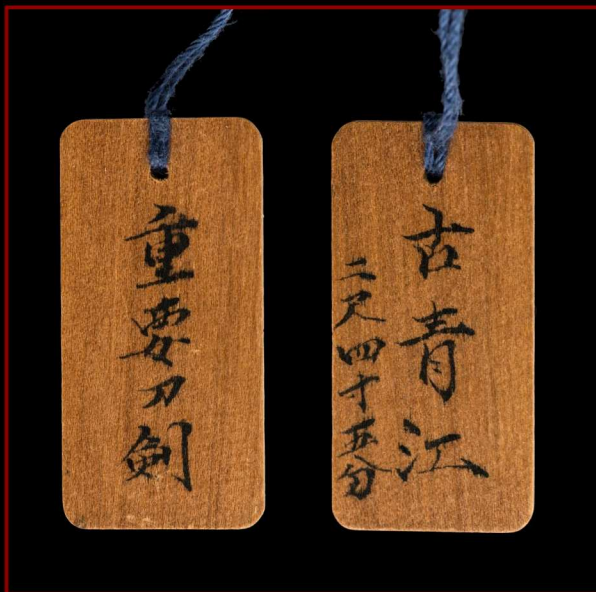 重要刀剣
古青江
二尺四寸五分